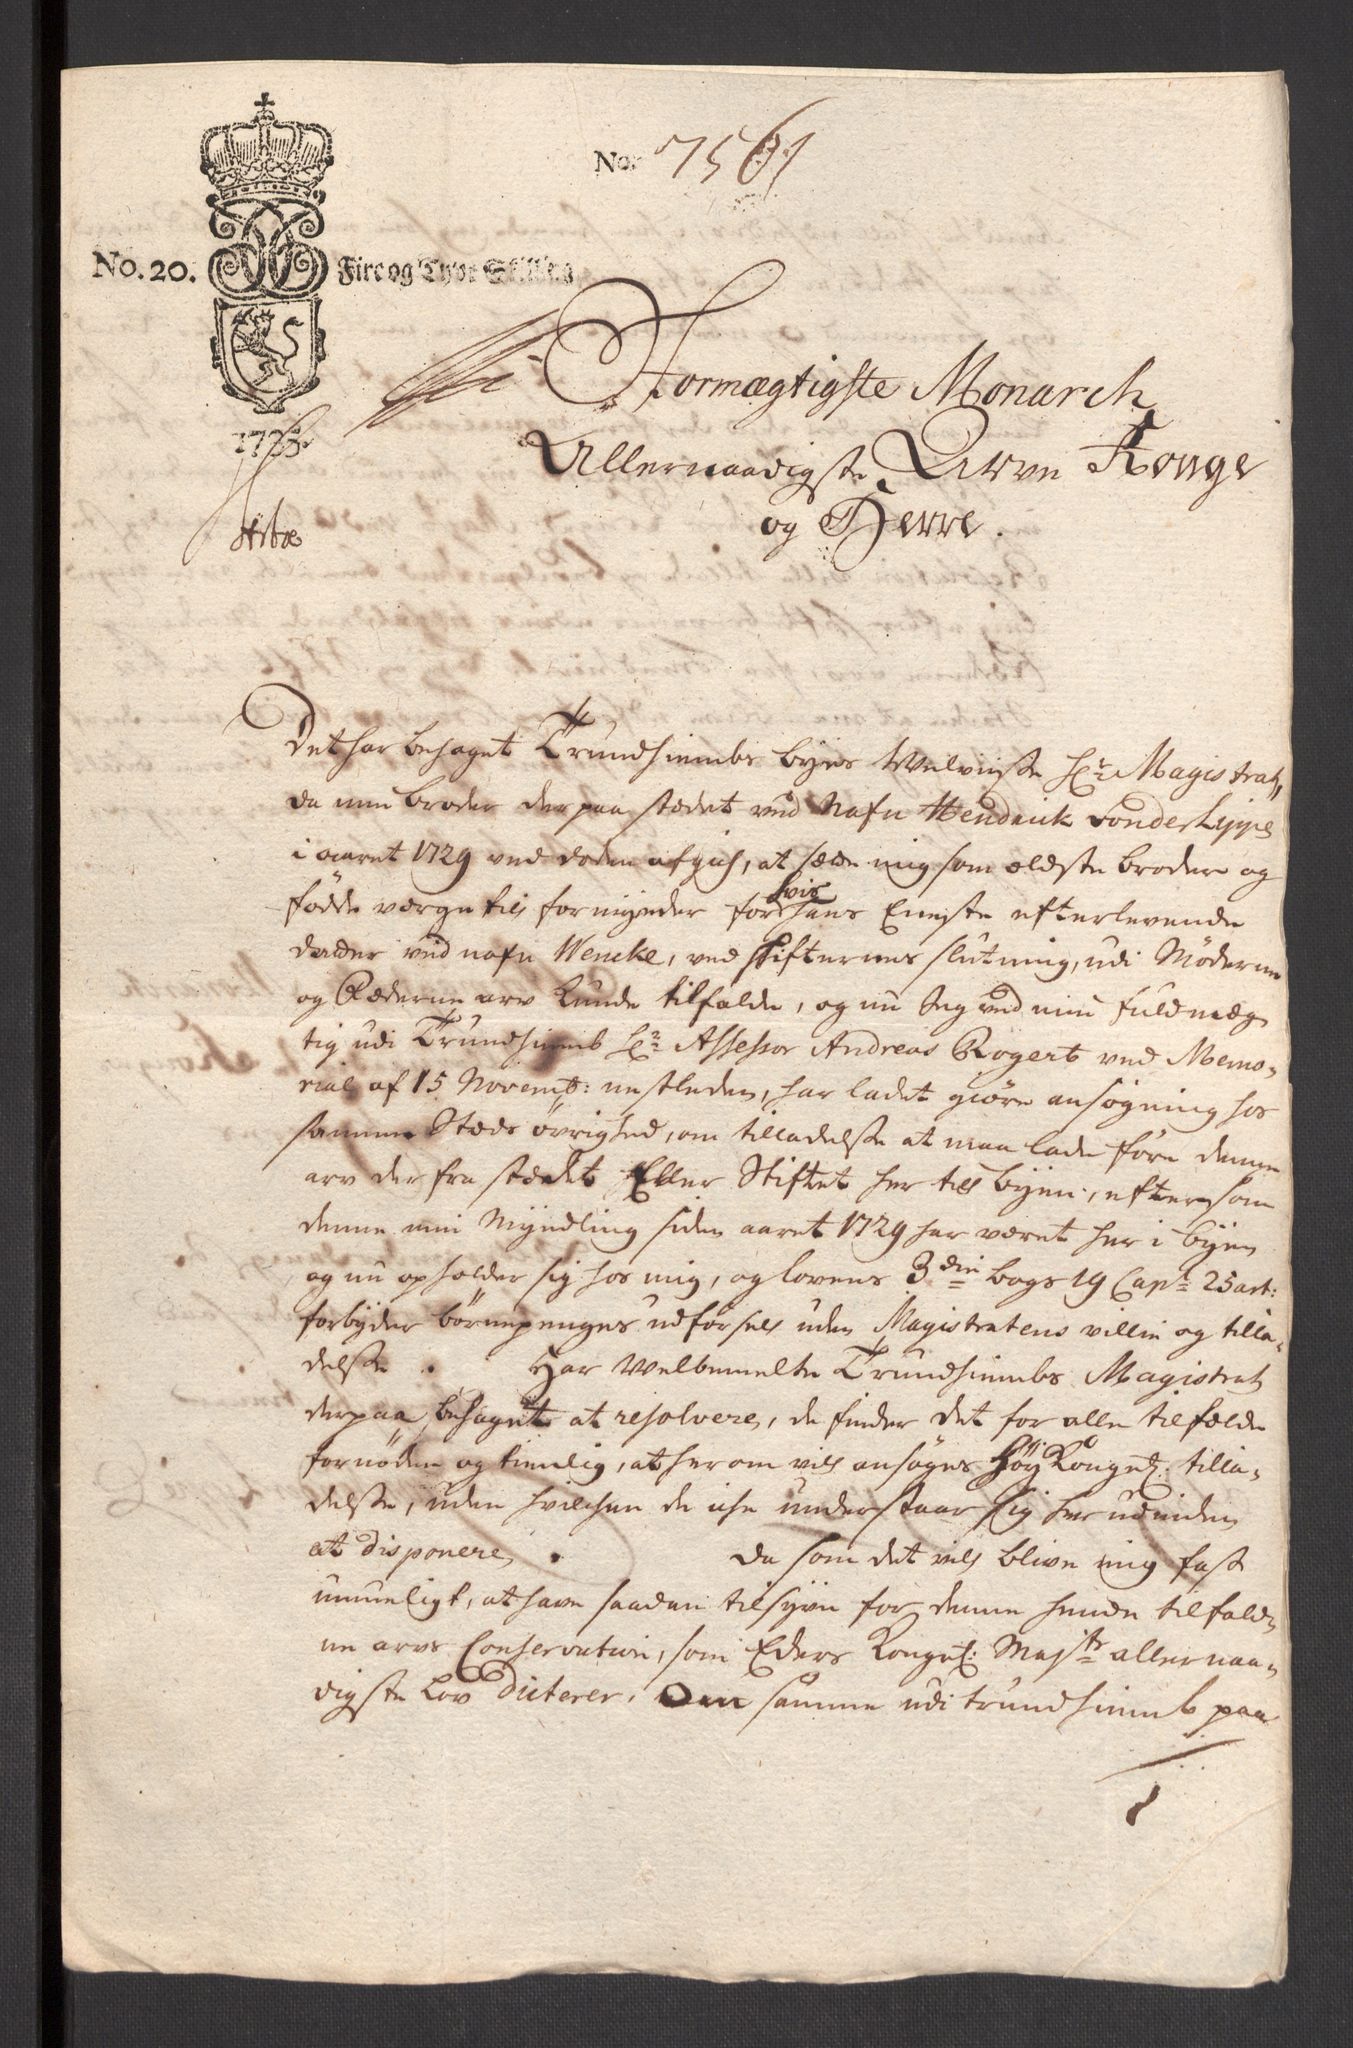 No: 7561
No. 20. Fire og Tyve Skilling
1733.
Stormægtigste Monarch
Allernaadigste Arve Konge
og Herre.
Det har behaget Trundhiembs byes Velviise Hr: Magistrat,
da min broder der paa stædet ved Nafn Hendrick Fonderlippe
i aaret 1729 ved døden afgich, at sætte mig som ældste broder og
fødde værge till formynder for hvis hans Eneste efterlevende
datter ved nafn Wencke, ved skifternes slutning, udi Møderne
og Fæderne arv kunde tilfalde, og nu Jeg ved min fuldmæg
tig udi Trundhiemb Hr: Assessor Andreas Rogert ved Memo-
rial af 15 Novemb: nestleden, har ladet giøre ansøgning hos
samme Stæds øvrighed, om tilladelsse at maa lade føre denne
arv der fra stædet Eller Stiftet her till byen, efter som
denne min Myndling siden aaret 1729 har været her i byen
og nu opholder sig hos mig, og lovens 3die bogs 19 Cap: 25 art:
forbyder børnepenges udførsell uden Magistratens villie og tilla-
delsse. Har Velbemelte Trundhiembs Magistrat
derpaa behaget at resolvere, de finder det for alle tilfælde
fornøden og tienlig, at her om vill ansøges Høy Kongel: tilla-
delsse, uden hvilchen de iche understaar sig her udinden
at disponere. Da som det vill blive mig fast
umueligt, at have saadan tilsyn for denne hende tilfald-
ne arvs Conservation, som Eders Kongel: Majts allernaa-
digste Lov dicterer, om samme udi trundhiemb paa